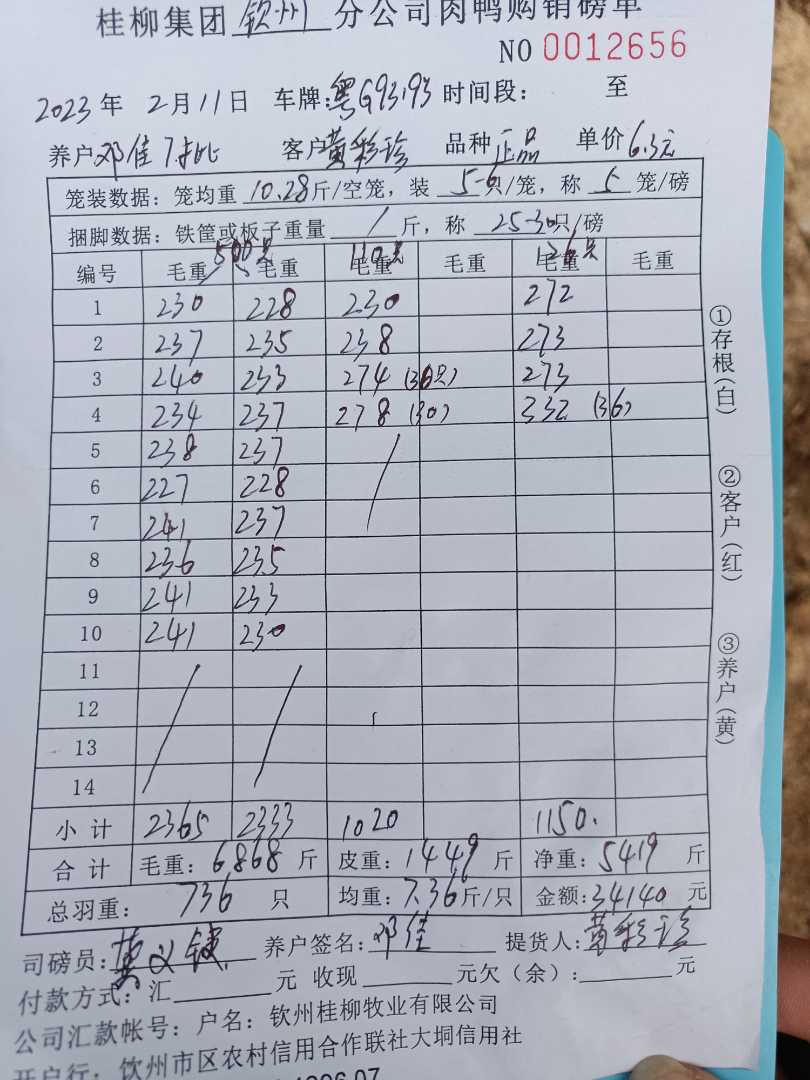 桂柳集团 钦州 分公司肉鸭购销磅单
NO 0012656
2023年 2月11日 车牌:粤G93193 时间段: 至
养户 邓佳 客户 黄彩珍 品种 正品 单价 6.3元
笼装数据: 笼均重 10.28 斤/空笼, 装 5-6 只/笼, 称 5 笼/磅
捆脚数据: 铁筐或板子重量 / 斤, 称 25-30 只/磅
500只 110只 126只
编号 毛重 毛重 毛重 毛重 毛重 毛重
1 230 228 230 272
2 237 235 238 273
3 240 233 274 (30只) 273
4 234 237 278 (30) 332 (36)
5 238 237
6 227 228
7 241 237
8 236 235
9 241 233
10 241 230
11
12
13
14
小计 2365 2333 1020 1150.
合计 毛重: 6868 斤 皮重: 1449 斤 净重: 5419 斤
总羽重: 736 只 均重: 7.36 斤/只 金额: 34140 元
司磅员: 黄义键 养户签名: 邓佳 提货人: 黄彩珍
付款方式: 汇 元 收现 元欠(余): 元
公司汇款帐号: 户名: 钦州桂柳牧业有限公司
开户行: 钦州市区农村信用合作联社大垌信用社
①存根(白)
②客户(红)
③养户(黄)